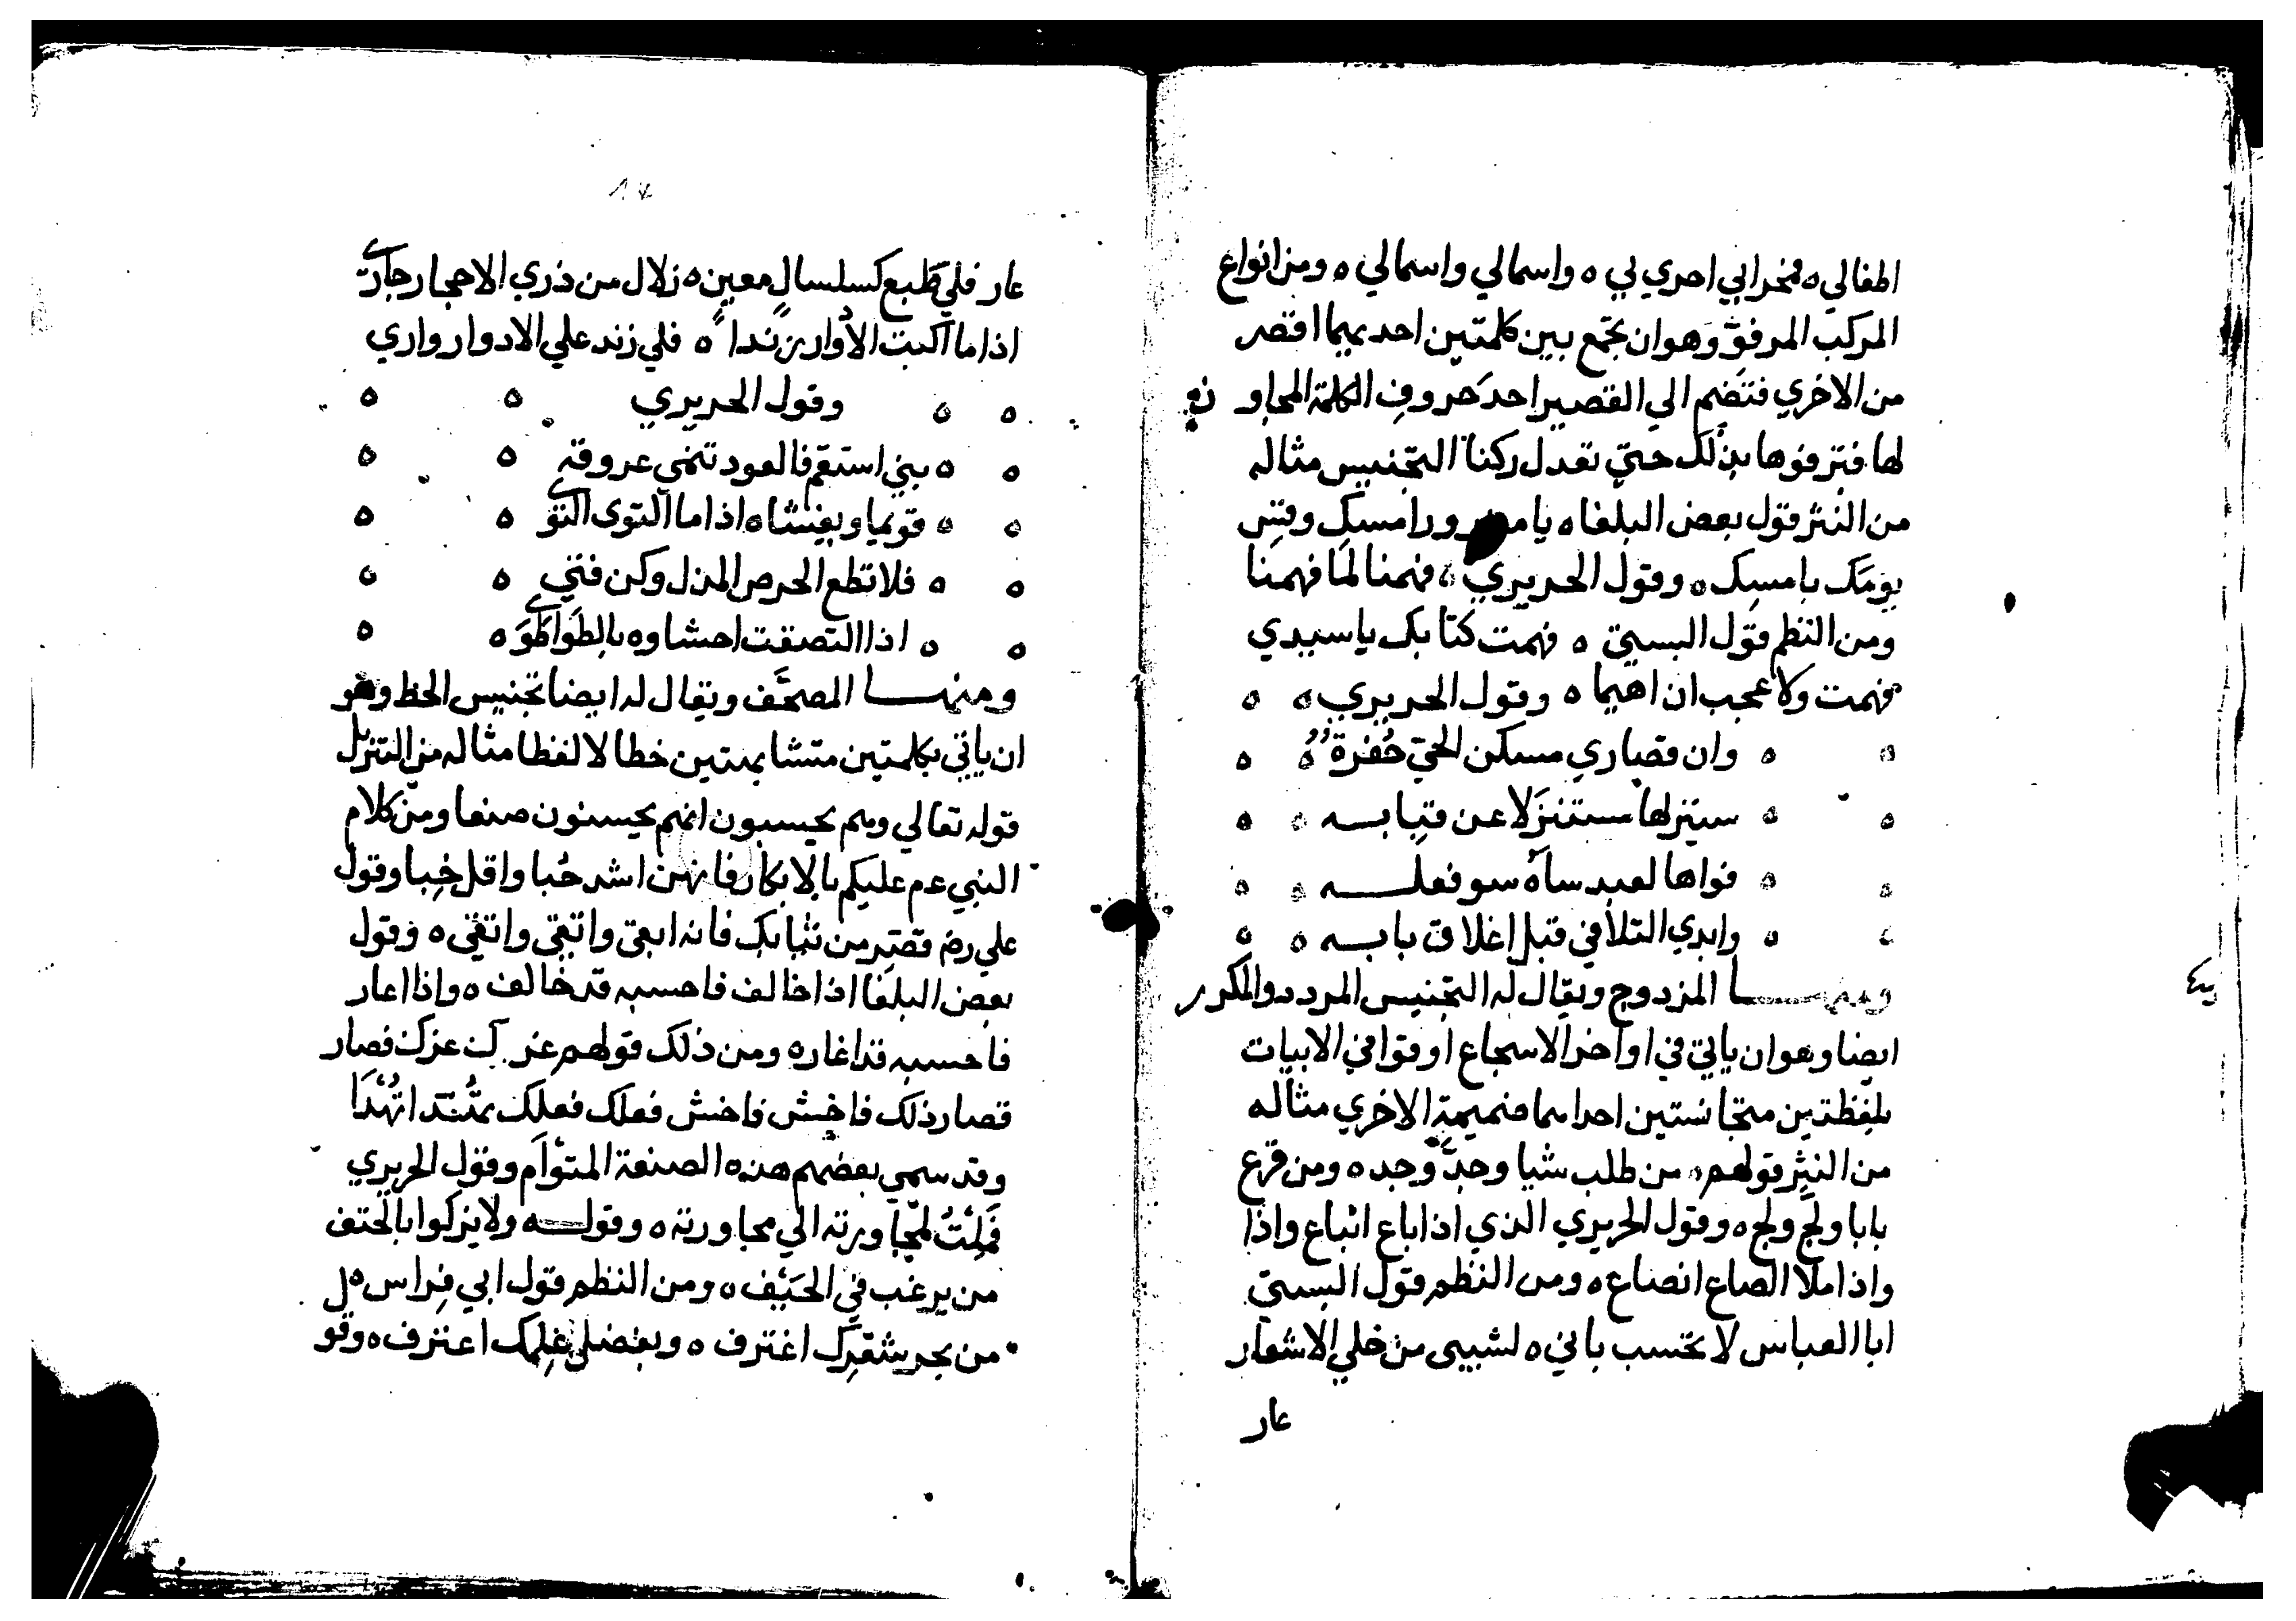 المغالي ه فنحرابي احري لي بي ه واسمالي واسمالي ه ومن انواع
المركب المرفوّ وهوان يجمع بين كلمتين احديهما اقصر
من الاخري فتضم الي القصير احد حروف الكلمة المجاو
لها فترفوها بذلك حتي تعدل ركنا التجنيس مثاله
من النثر قول بعض البلغا ه يا مغرورا مسك وقس
يومك بامسك ه وقول الحريري ه فهمنا لما فهمنا
ومن النظم قول البستي ه فهمت كتابك يا سيدي
فهمت ولا عجب ان اهيما ه وقول الحريري ه ه
وان قصاري مسكن الحي حفرة
سينزلها مستنزلا عن قبابه
فواها لعبد ساه سو فعله
وابدي التلافي قبل اغلاق بابه
ومنها المزدوج ويقال له التجنيس المردد والمكرر
ايضا وهوان ياتي في اواخر الاسجاع او قوافي الابيات
بلفظتين متجانستين احداهما ضميمة الاخري مثاله
من النثر قولهم ه من طلب شيا وجدّ وجد ه ومن قرع
بابا ولجّ ولج ه وقول الحريري الذي اذا باع انباع واذا
واذا ملا الصاع انصاع ه ومن النظم قول البستي
ابا العباس لا تحسب باني ه لشيبى من حلي الاشعار
عار
عار فلي طبع كسلسال معين ه زلال من ذري الاحجار جاري
اذا ما اكبت الأوار زندا ه فلي زند علي الادوار واري
وقول الحريري
بني استقم فالعود تنمي عروقه
قويما ويغشاه اذا ما التوى التوي
فلا تطع الحرص المذل وكن فتي
اذا التصقت احشاوه بالطوا طوي
ومنها المصحّف ويقال له ايضا تجنيس الخط وهو
ان ياتي بكلمتين متشابهتين خطا لا لفظا مثاله من التنزيل
قوله تعالي وهم يحسبون انهم يحسنون صنعا ومن كلام
النبي عم عليكم بالابكار فانهن اشد حُبا واقل خِبا وقول
علي رضه قصّر من ثيابك فانه ابقي واتقي وانقي ه وقول
بعض البلغا اذا خالف فاحسبه قد خالف ه واذا اعار
فاحسبه قد اغاره ومن ذلك قولهم غرك عزك فصار
قصار ذلك فاخش فاحش فعلك فعلك
وقد سمي بعضهم هذه الصنعة المتوأم وقول الحريري
فملت لمجاورته الي محاورته ه وقوله ولا يزكوا بالخيف
من يرغب في الحيف ه ومن النظم قول ابي فراس ه
من بحر شعرك اغترف ه وبفضل علمك اعترف ه وقو